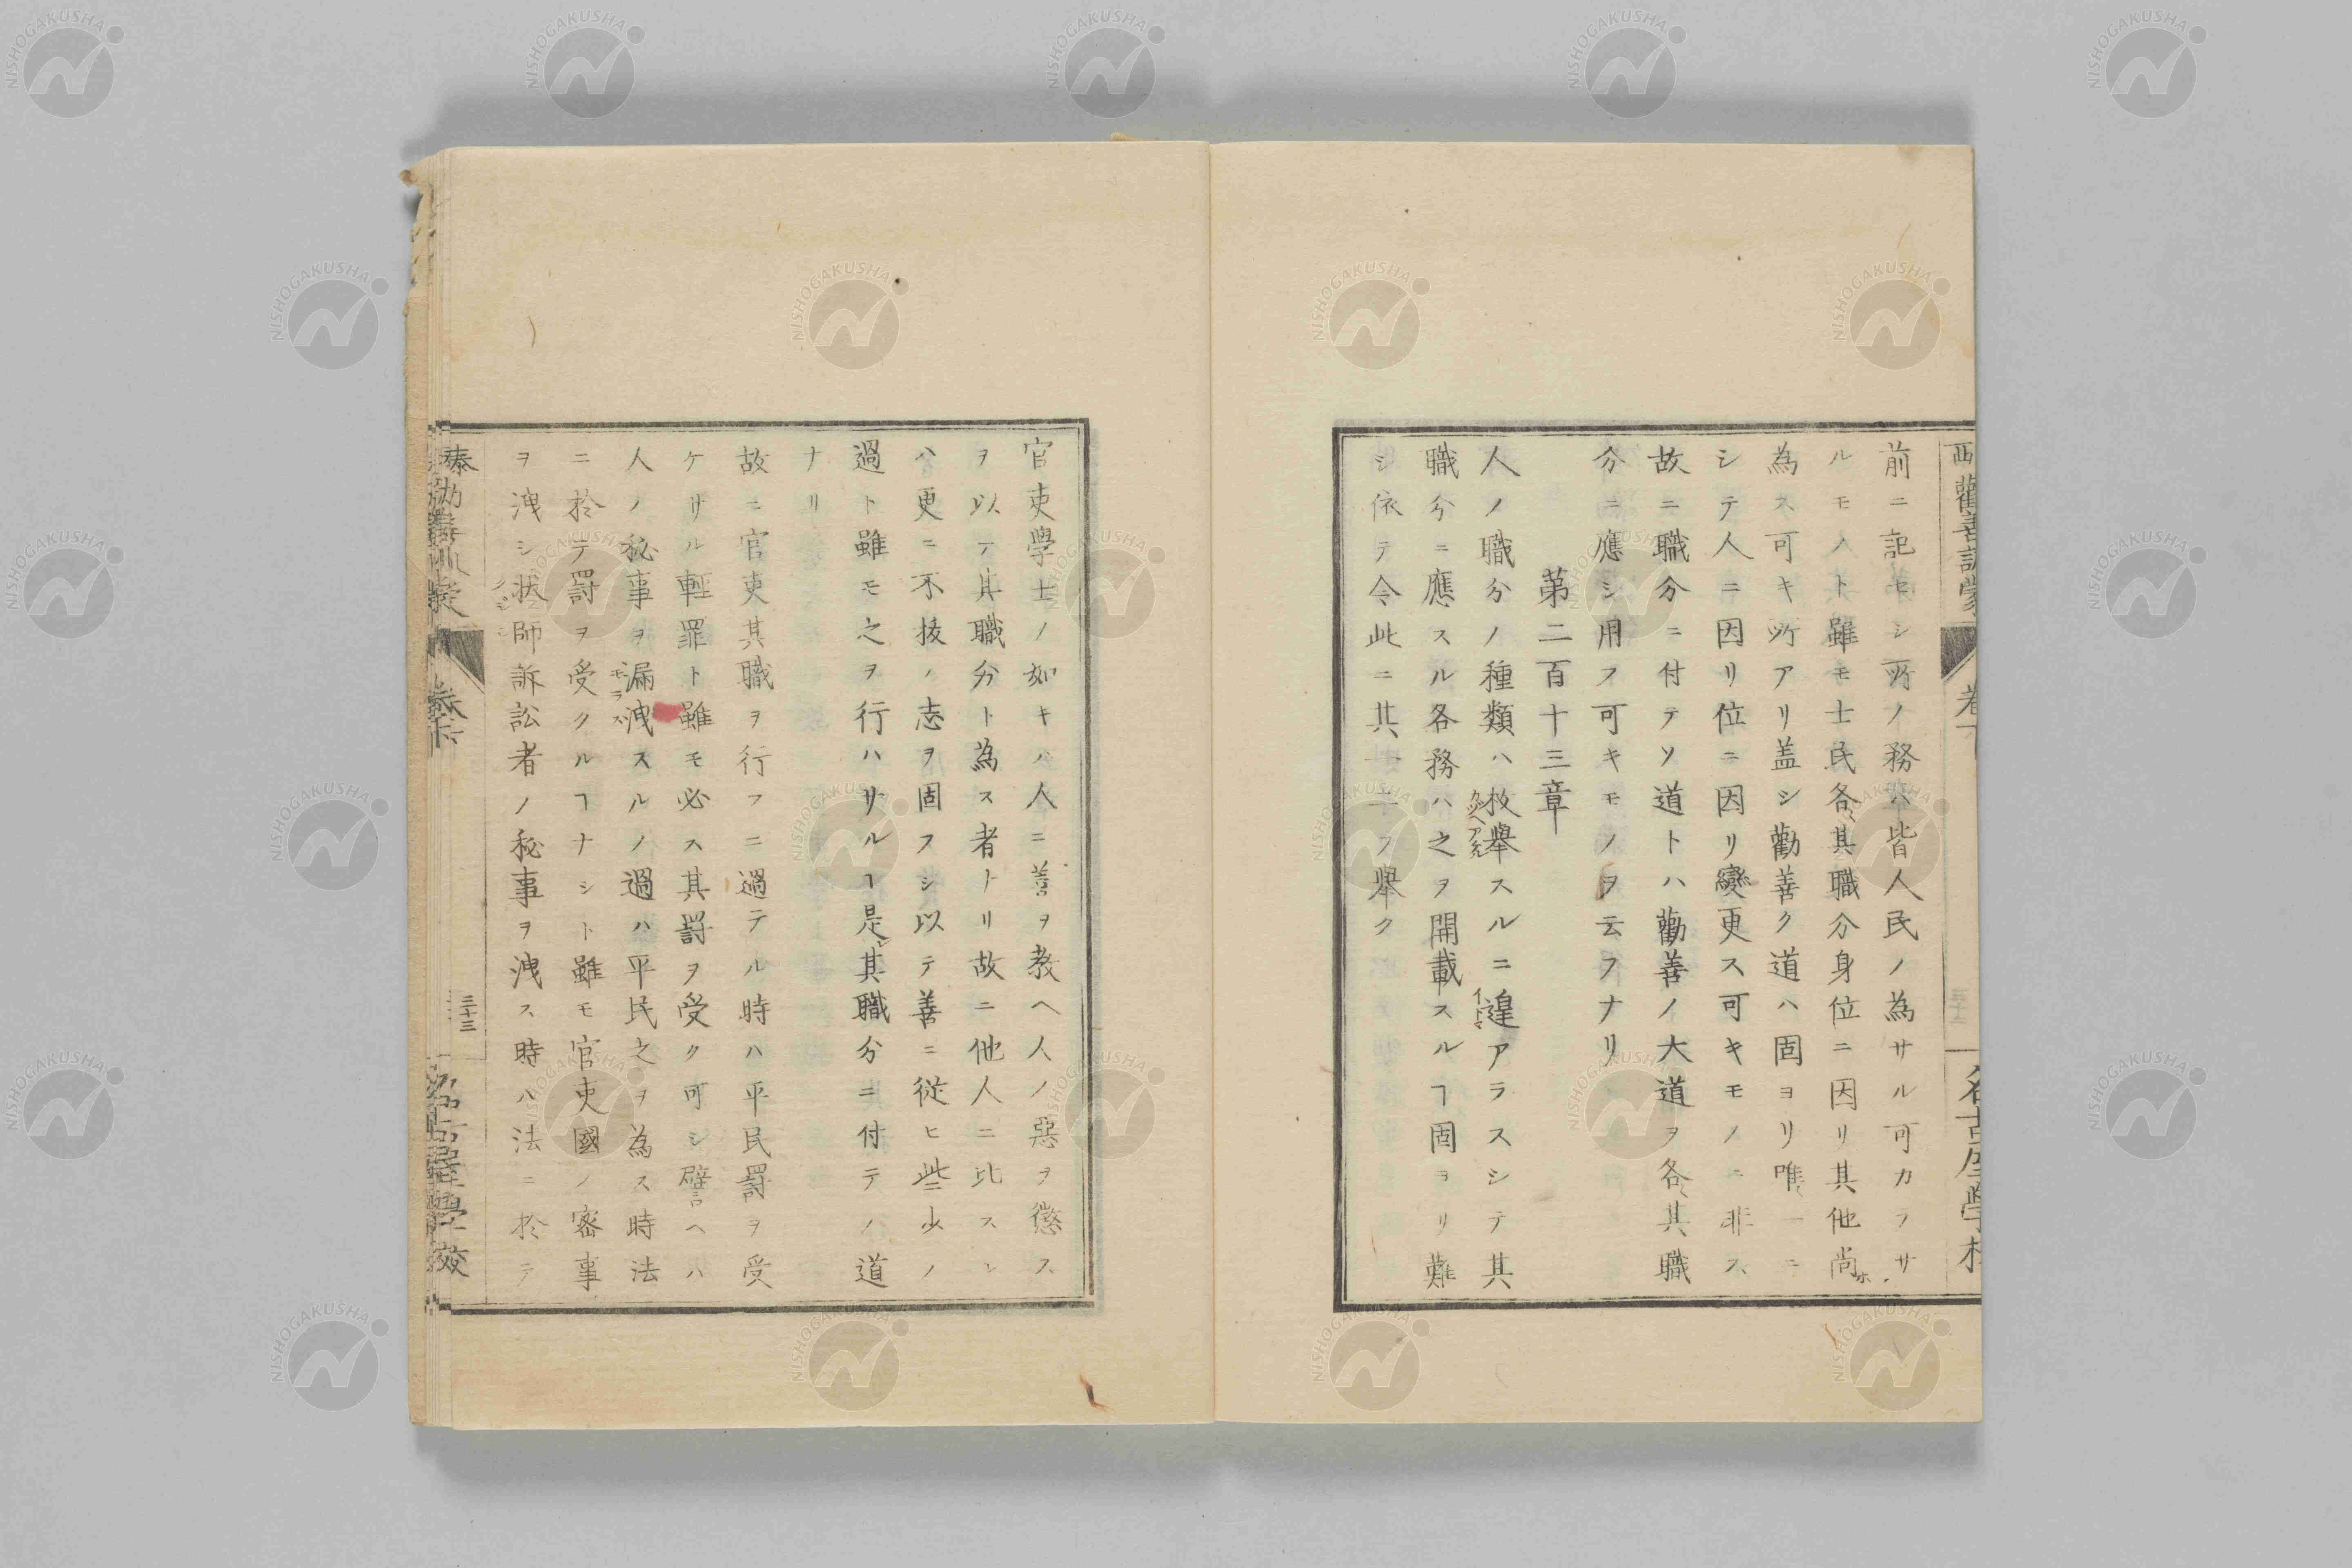 前ニ記セシ所ノ務ハ皆人民ノ為サル可カラサ
ルモノト雖モ士民各〻其職分身位ニ因リ其他尚ホ
為ス可キ所アリ盖シ勸善ク道ハ固ヨリ唯〻一ニ
シテ人ニ因リ位ニ因リ變更ス可キモノニ非ス
故ニ職分ニ付テソ道トハ勸善ノ大道ヲ各〻其職
分ニ應シ用フ可キモノヲ云フナリ
第二百十三章
人ノ職分ノ種類ハ枚擧スルニ遑アラスシテ其
職分ニ應スル各務ハ之ヲ開載スルヿ固ヨリ難
シ依テ今此ニ其一二ヲ擧ク
官吏學士ノ如キハ人ニ善ヲ教ヘ人ノ惡ヲ懲ス
ヲ以テ其職分ト為ス者ナリ故ニ他人ニ比スレ
ハ更ニ不拔ノ志ヲ固フシ以テ善ニ従ヒ些少ノ
過ト雖モ之ヲ行ハサルヿ是其職分ニ付テノ道
ナリ
故ニ官吏其職ヲ行フニ過テル時ハ平民罰ヲ受
ケサル輕罪ト雖モ必ス其罰ヲ受ク可シ譬ヘハ
人ノ秘事ヲ漏洩スルノ過ハ平民之ヲ為ス時法
モラス
ニ於テ罰ヲ受クルヿナシト雖モ官吏國ノ密事
ヲ洩シ状師訴訟者ノ秘事ヲ洩ス時ハ法ニ於テ
三十三
NISHOGAKUSHA